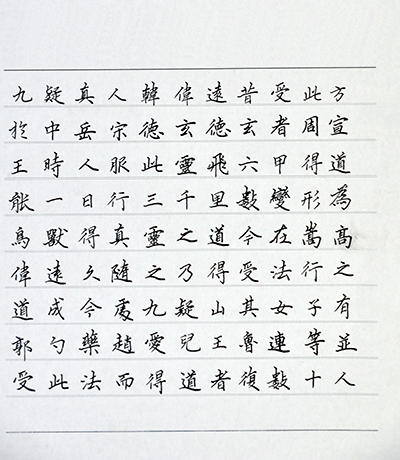 九疑真人韓偉遠昔受此方
於中岳宗德玄德玄者周宣
王時人服此靈飛六甲得道
能一日行三千里數變形為
鳥獸得真靈之道今在嵩高
偉遠久隨之乃得受法行之
道成今處九疑山其女子有
郭勺藥趙愛兒王魯連等並
受此法而得道者復數十人